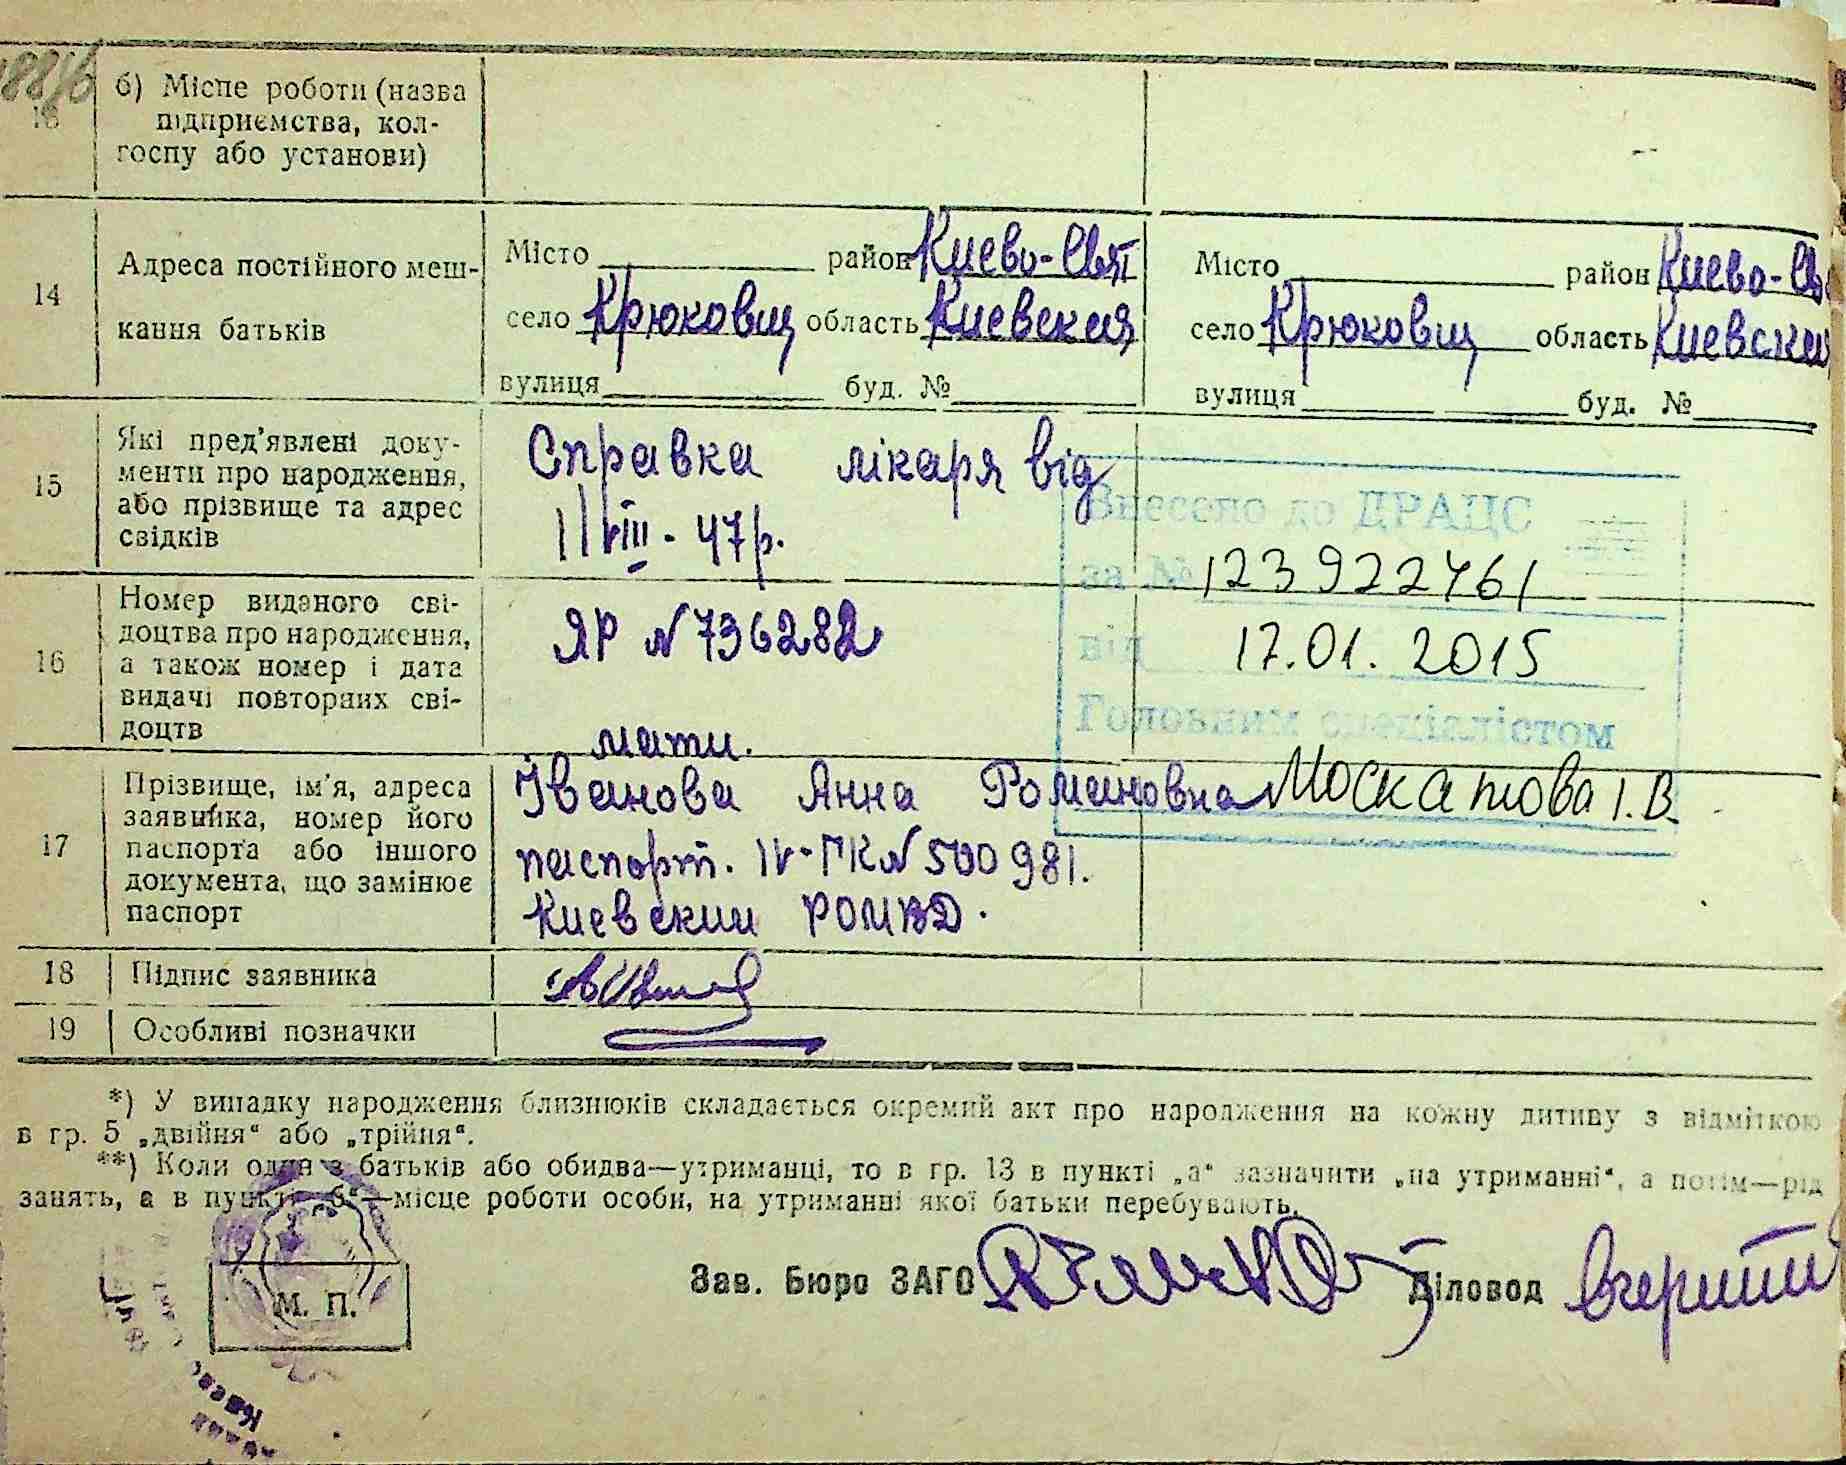 13 б) Місце роботи (назва
підприємства, кол-
госпу або установи)
14 Адреса постійного меш-
кання батьків
Місто район Киево-Свят
село Крюковщ область Киевская
вулиця буд. №
Місто район Киево-Св
село Крюковщ область Киевская
вулиця буд. №
15 Які пред'явлені доку-
менти про народження,
або прізвище та адрес
свідків
Справка лікаря від
11 VIII - 47 р.
Внесено до ДРАЦС
за № 123922461
від 17.01.2015
Головним спеціалістом
Москатова І.В.
16 Номер виданого сві-
доцтва про народження,
а також номер і дата
видачі повторних сві-
доцтв
ЯР № 736282
17 Прізвище, ім'я, адреса
заявника, номер його
паспорта або іншого
документа, що замінює
паспорт
мати.
Іванова Анна Романовна
паспорт. IV-ГК № 500981.
Киевским РОМВД.
18 Підпис заявника
19 Особливі позначки
*) У випадку народження близнюків складається окремий акт про народження на кожну дитину з відміткою
в гр. 5 „двійня“ або „трійня“.
**) Коли один з батьків або обидва—утриманці, то в гр. 13 в пункті „а“ зазначити „на утриманні“, а потім—рід
занять, а в пункті „б“—місце роботи особи, на утриманні якої батьки перебувають.
Зав. Бюро ЗАГС Діловод
М. П.